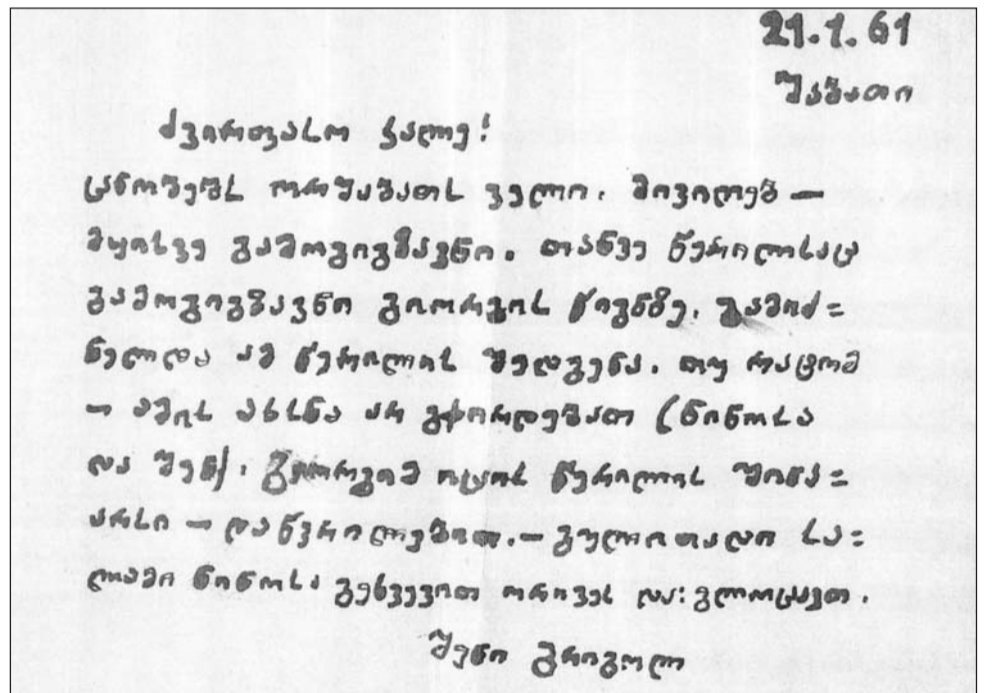 21.1.61
შაბათი
ძვირფასო კალე!
ცნობებს ორშაბათს ველი. მივიღებ —
მყისვე გამოგიგზავნი. თანვე წერილსაც
გამოგიგზავნი გიორგის წიგნზე. გამიძ=
ნელდა ამ წერილის შედგენა. თუ რატომ
— ამის ახსნა არ გჭირდებათ (ნინოსა
და შენ). გიორგიმ იცის წერილის შინა=
არსი — დაწვრილებით. — გულითადი სა=
ლამი ნინოსა გეხვევით ორივეს და: გლოცავთ.
შენი გრიგოლი